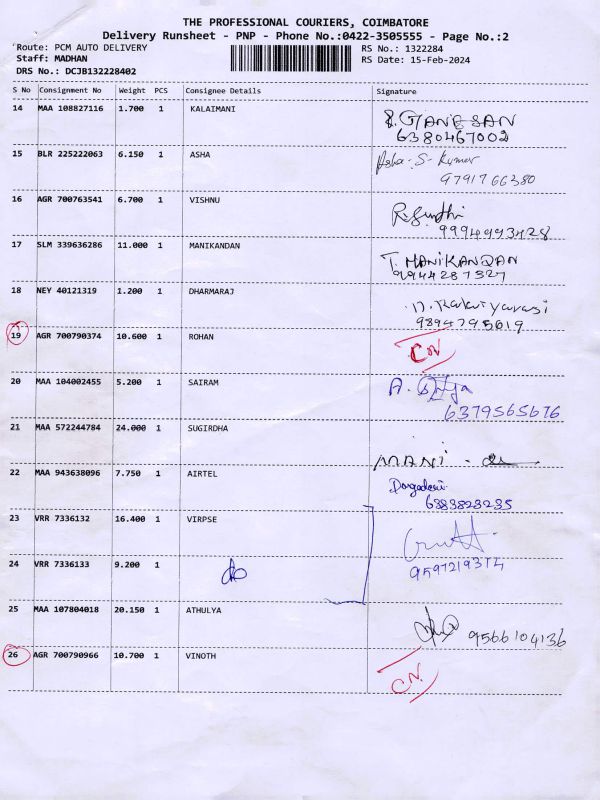 THE PROFESSIONAL COURIERS, COIMBATORE
Delivery Runsheet - PNP - Phone No.:0422-3505555 - Page No.:2
Route: PCM AUTO DELIVERY RS No.: 1322284
Staff: MADHAN RS Date: 15-Feb-2024
DRS No.: DCJB132228402
S No Consignment No Weight PCS Consignee Details Signature
14 MAA 108827116 1.700 1 KALAIMANI GANESAN
6380467002
15 BLR 225222063 6.150 1 ASHA Asha S. Kumar
9791766380
16 AGR 700763541 6.700 1 VISHNU
9994993428
17 SLM 339636286 11.000 1 MANIKANDAN T. MANIKANDAN
9944287327
18 NEY 40121319 1.200 1 DHARMARAJ
9894795619
19 AGR 700790374 10.600 1 ROHAN CN
20 MAA 104002455 5.200 1 SAIRAM
6379565676
21 MAA 572244784 24.000 1 SUGIRDHA MANI
22 MAA 943638096 7.750 1 AIRTEL
6383823235
23 VRR 7336132 16.400 1 VIRPSE
24 VRR 7336133 9.200 1
25 MAA 107804018 20.150 1 ATHULYA 9566104136
26 AGR 700790966 10.700 1 VINOTH CN